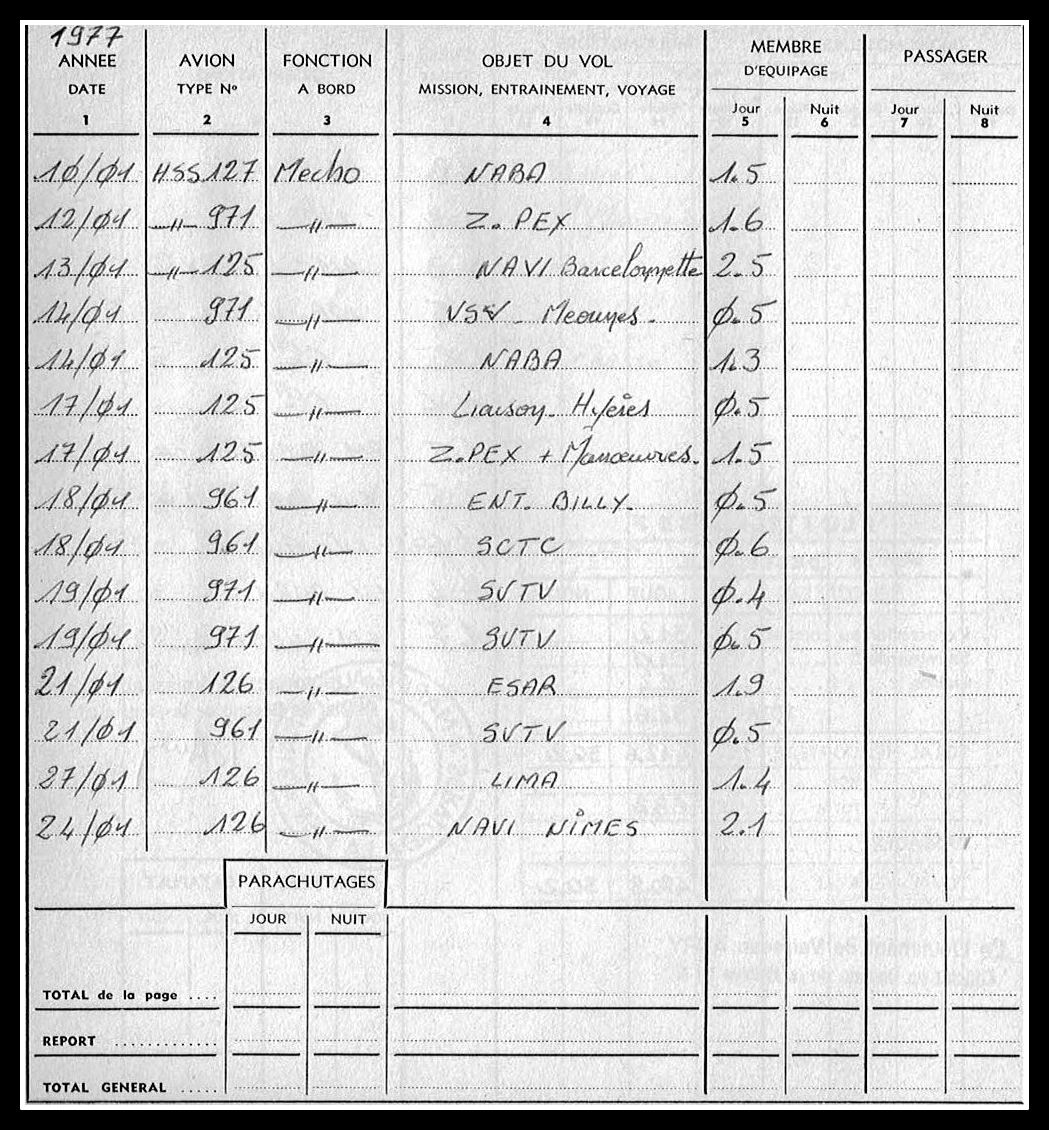 1977
ANNEE AVION FONCTION OBJET DU VOL MEMBRE D'EQUIPAGE PASSAGER
DATE TYPE Nº A BORD MISSION, ENTRAINEMENT, VOYAGE Jour Nuit Jour Nuit
1 2 3 4 5 6 7 8
10/01 HSS 127 Mecho NABA 1.5
12/01 —〃— 971 —〃— Z.PEX 1.6
13/01 —〃— 125 —〃— NAVI Barcelonnette 2.5
14/01 971 —〃— VSV - Meounes - 0.5
14/01 125 —〃— NABA 1.3
17/01 125 —〃— Liaison - Hyères 0.5
17/01 125 —〃— Z.PEX + Manœuvres. 1.5
18/01 961 —〃— ENT. BILLY. 0.5
18/01 961 —〃— SCTC 0.6
19/01 971 —〃— SVTV 0.4
19/01 971 —〃— SVTV 0.5
21/01 126 —〃— ESAR 1.9
21/01 961 —〃— SVTV 0.5
27/01 126 —〃— LIMA 1.4
24/01 126 —〃— NAVI NÎMES 2.1
PARACHUTAGES
JOUR NUIT
TOTAL de la page ....
REPORT .............
TOTAL GENERAL .....